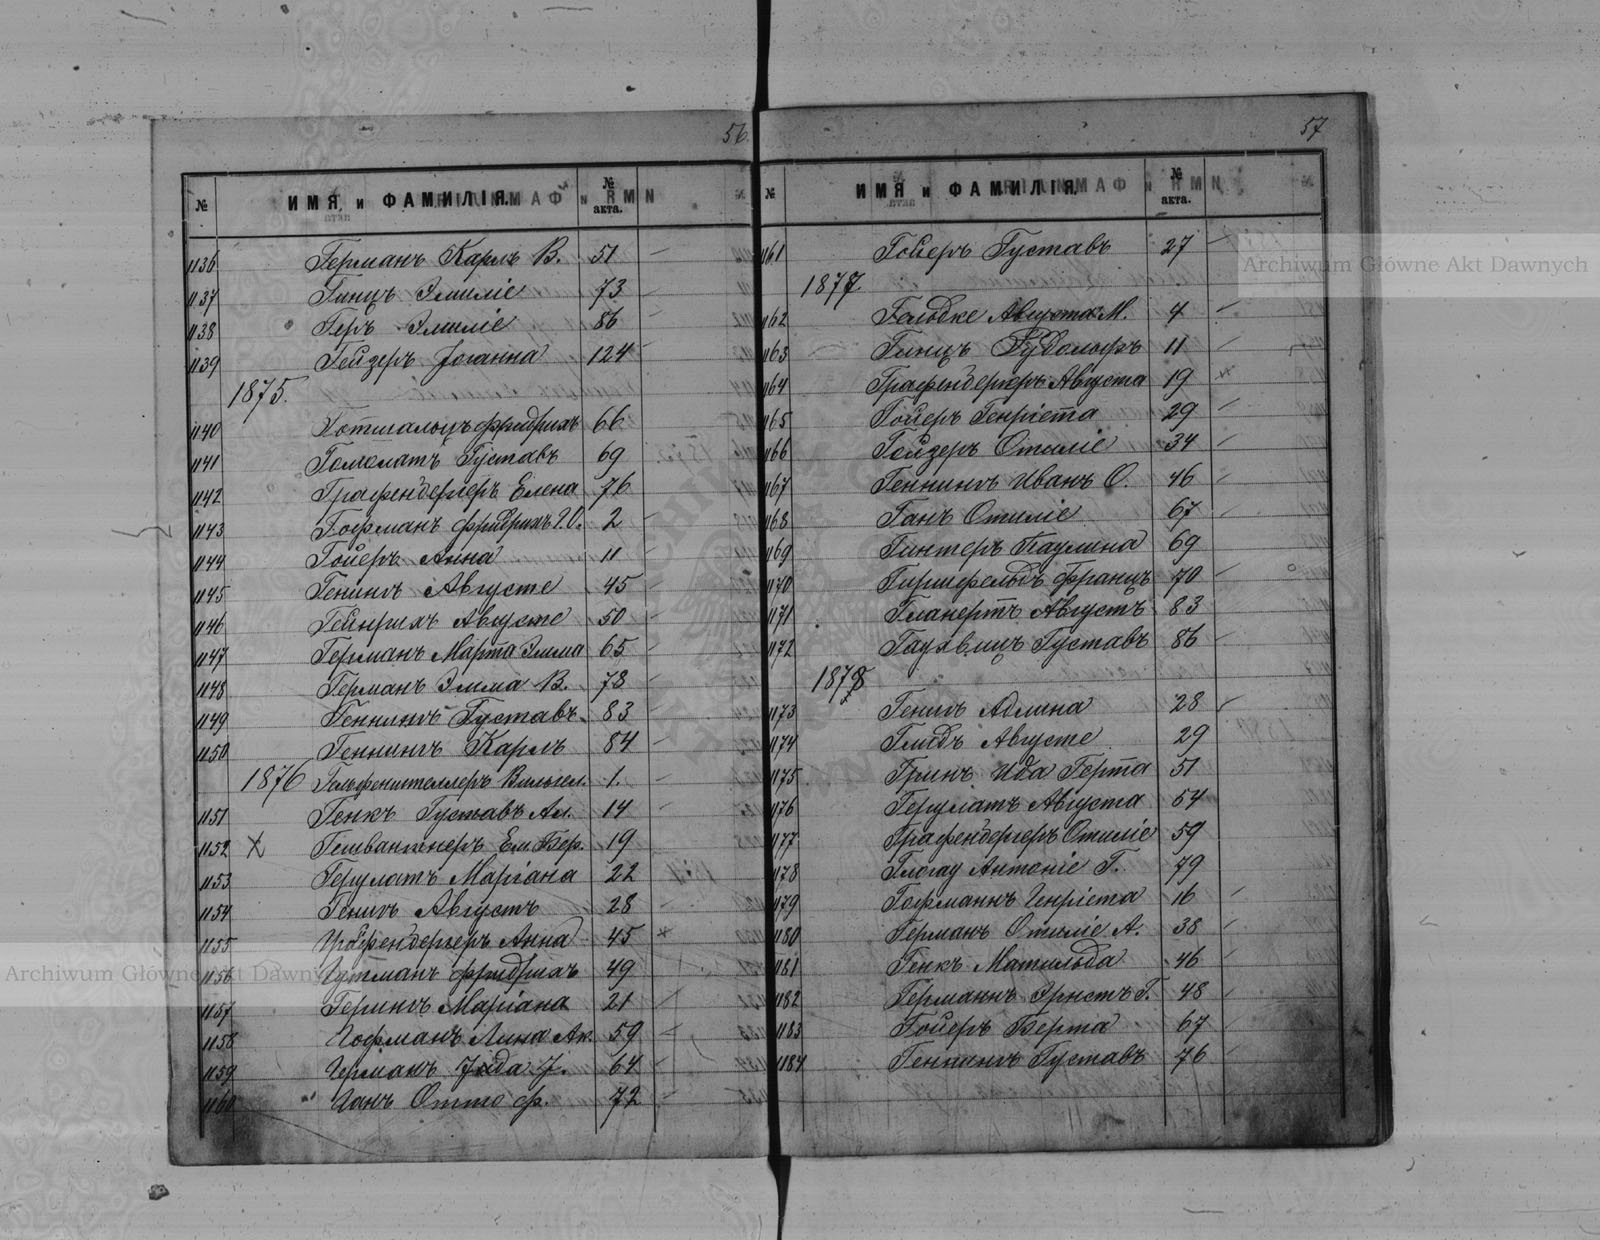 56
№ ИМЯ и ФАМИЛІЯ. № акта.
1136 Германъ Карлъ В. 51 —
1137 Гинцъ Эмиліе 73 —
1138 Геръ Эмиліе 86 —
1139 Гейзеръ Іоганна 124 —
1875.
1140 Готшальцъ Фридрихъ 66
1141 Гомолатъ Густавъ 69
1142 Графендергеръ Елена 76
1143 Гофманъ Фридрихъ 2 —
1144 Гойеръ Анна 11 —
1145 Генингъ Августе 45 —
1146 Гейнрихъ Августе 50 —
1147 Германъ Марта Эмма 65 —
1148 Германъ Эмма В. 78 —
1149 Геннингъ Густавъ 83 —
1150 Геннингъ Карлъ 84 —
1876 Вильгел. 1. —
1151 Генкъ Густавъ Ал. 14 —
1152 X Ем. Бер. 19 —
1153 Герулатъ Маріана 22 —
1154 Генигъ Августъ 28 —
1155 Графендергеръ Анна 45 x
1156 Гутманъ Фридрихъ 49
1157 Герингъ Маріана 21
1158 Гофманъ Лина Ак. 59
1159 Германъ Ида J. 64 —
1160 Ганъ Отто Ф. 72 —
57
№ ИМЯ и ФАМИЛІЯ. № акта.
1161 Гойеръ Густавъ 27 —
1877
1162 Гельдке Августа М. 4 —
1163 Гинцъ Рудольфъ 11 —
1164 Графендергеръ Августа 19 x
1165 Гойеръ Генріета 29 —
1166 Гейзеръ Отиліе 34 —
1167 Геннингъ Иванъ О. 46 —
1168 Ганъ Отиліе 67 —
1169 Гинтеръ Паулина 69
1170 Гиршфельдъ Францъ 70 —
1171 Гланертъ Августъ 83 —
1172 Густавъ 86 —
1878
1173 Генигъ Адлина 28 —
1174 Глидъ Августе 29
1175 Гринъ Ида Герта 51
1176 Герулатъ Августа 54
1177 Графендергеръ Отиліе 59
1178 Глогау Антоніе Г. 79
1179 Гофманнъ Генріета 16 —
1180 Германъ Отиліе А. 38 —
1181 Генкъ Матильда 46 —
1182 Германнъ Эрнстъ Г. 48 —
1183 Гойеръ Берта 67 —
1184 Геннингъ Густавъ 76 —
Archiwum Główne Akt Dawnych
Archiwum Główne Akt Dawnych